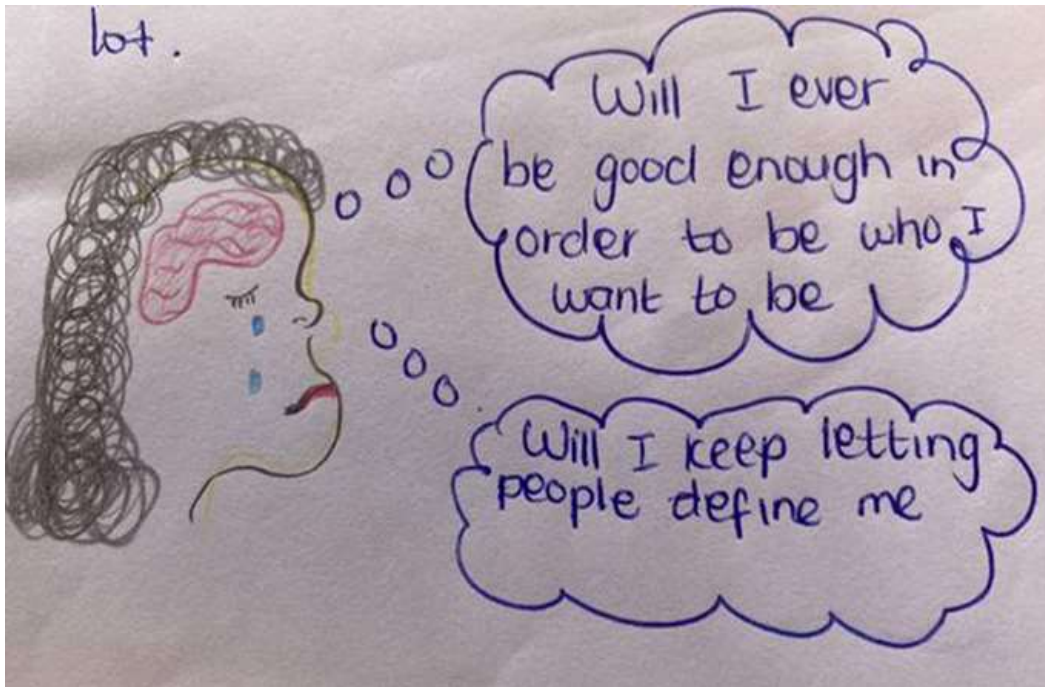 lot.
Will I ever
be good enough in
order to be who I
want to be
Will I keep letting
people define me